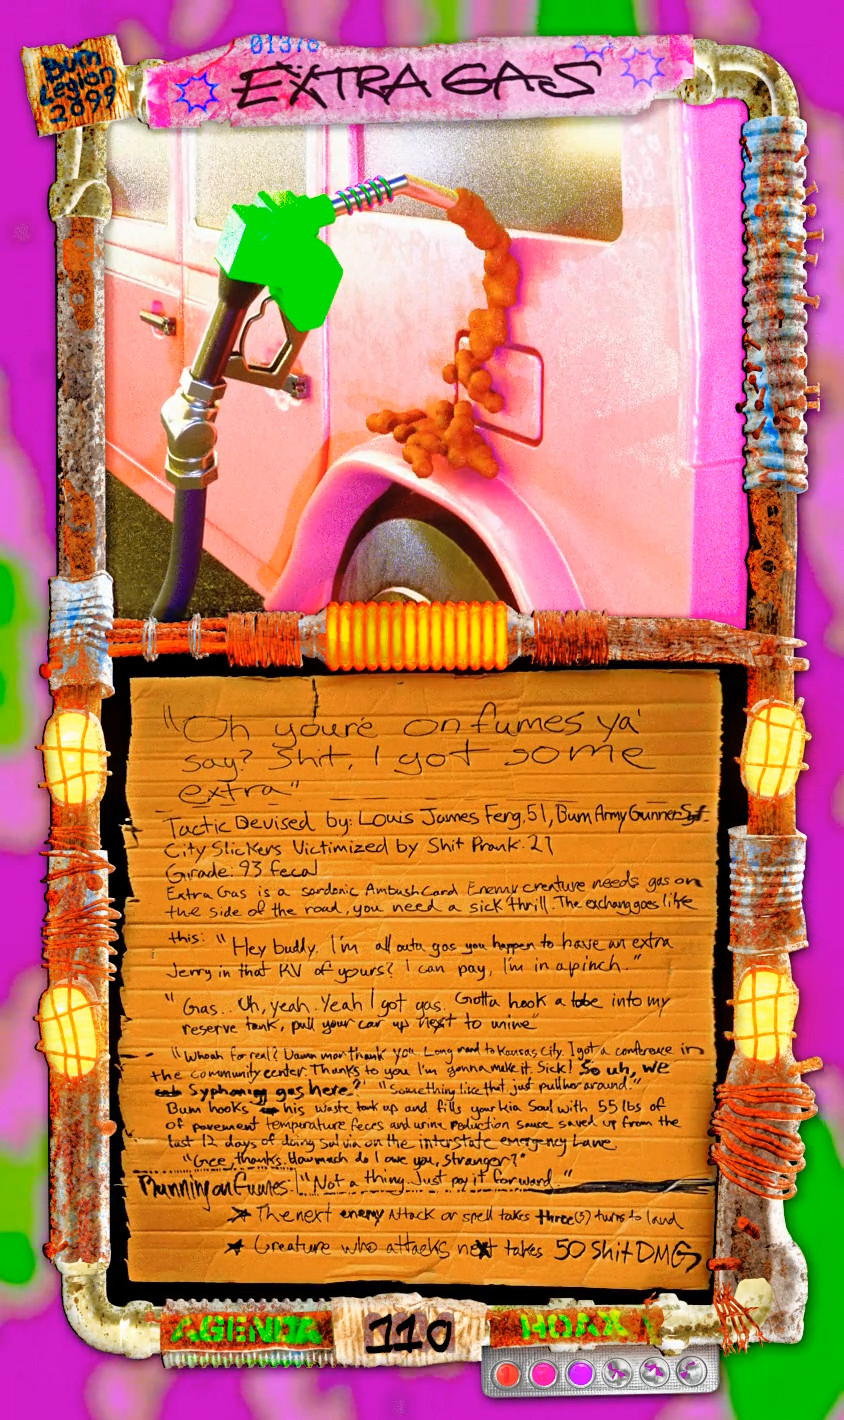 01376
Bum
Legion
2099
EXTRA GAS
"Oh youre on fumes ya'
say? Shit, I got some
extra"
Tactic Devised by: Louis James Ferg. 51, Bum Army Gunner Sgt.
City Slickers Victimized by Shit Prank: 27
Grade: 93 fecal
Extra Gas is a sardonic Ambush Card Enemy creature needs gas on
the side of the road, you need a sick thrill. The exchang goes like
this: "Hey buddy. I'm all outa gas you happen to have an extra
Jerry in that RV of yours? I can pay, I'm in a pinch."
"Gas... Uh, yeah. Yeah I got gas. Gotta hook a tube into my
reserve tank, pull your car up next to mine"
"Whoah for real? Damn man thank you. Long road to Kansas City. I got a conference in
the community center. Thanks to you I'm gonna make it. Sick! So uh, we
Syphoning gas here?" "Something like that just pull her around."
Bum hooks his waste tank up and fills your Kia Soul with 55 lbs of
of pavement temperature feces and urine reduction sauce saved up from the
last 12 days of doing salvia on the interstate emergency Lane
"Gee, thanks. How much do I owe you, Stranger?"
Running on Fumes: "Not a thing. Just pay it forward..."
The next enemy Attack or spell takes three(3) turns to land
Creature who attacks next takes 50 Shit DMG
AGENDA 110 HOAX